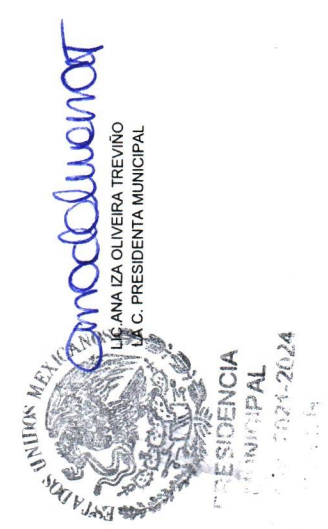 LIC. ANA IZA OLIVEIRA TREVIÑO
LA C. PRESIDENTA MUNICIPAL
ESTADOS UNIDOS MEXICANOS
PRESIDENCIA
MUNICIPAL
2021-2024